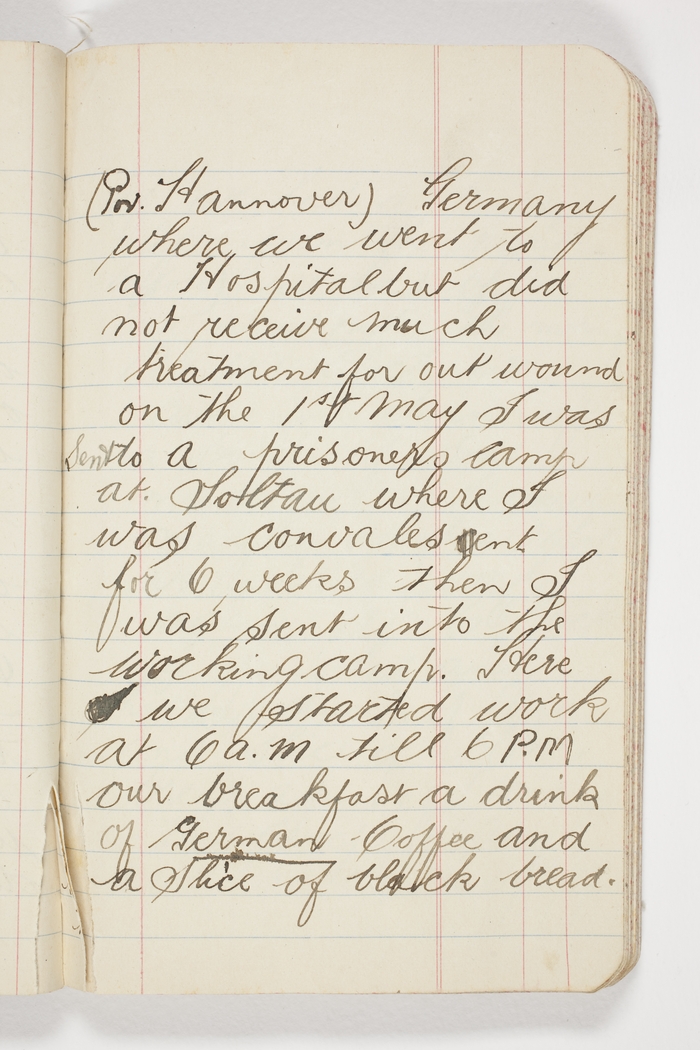 (Prv. Hannover) Germany
where we went to
a Hospital but did
not receive much
treatment for out wound
on the 1st May I was
sent to a prisoners camp
at. Soltau where I
was convalescent
for 6 weeks then I
was sent into the
working camp. Here
we started work
at 6 a.m till 6 P.M
our breakfast a drink
of German Coffee and
a Slice of black bread.